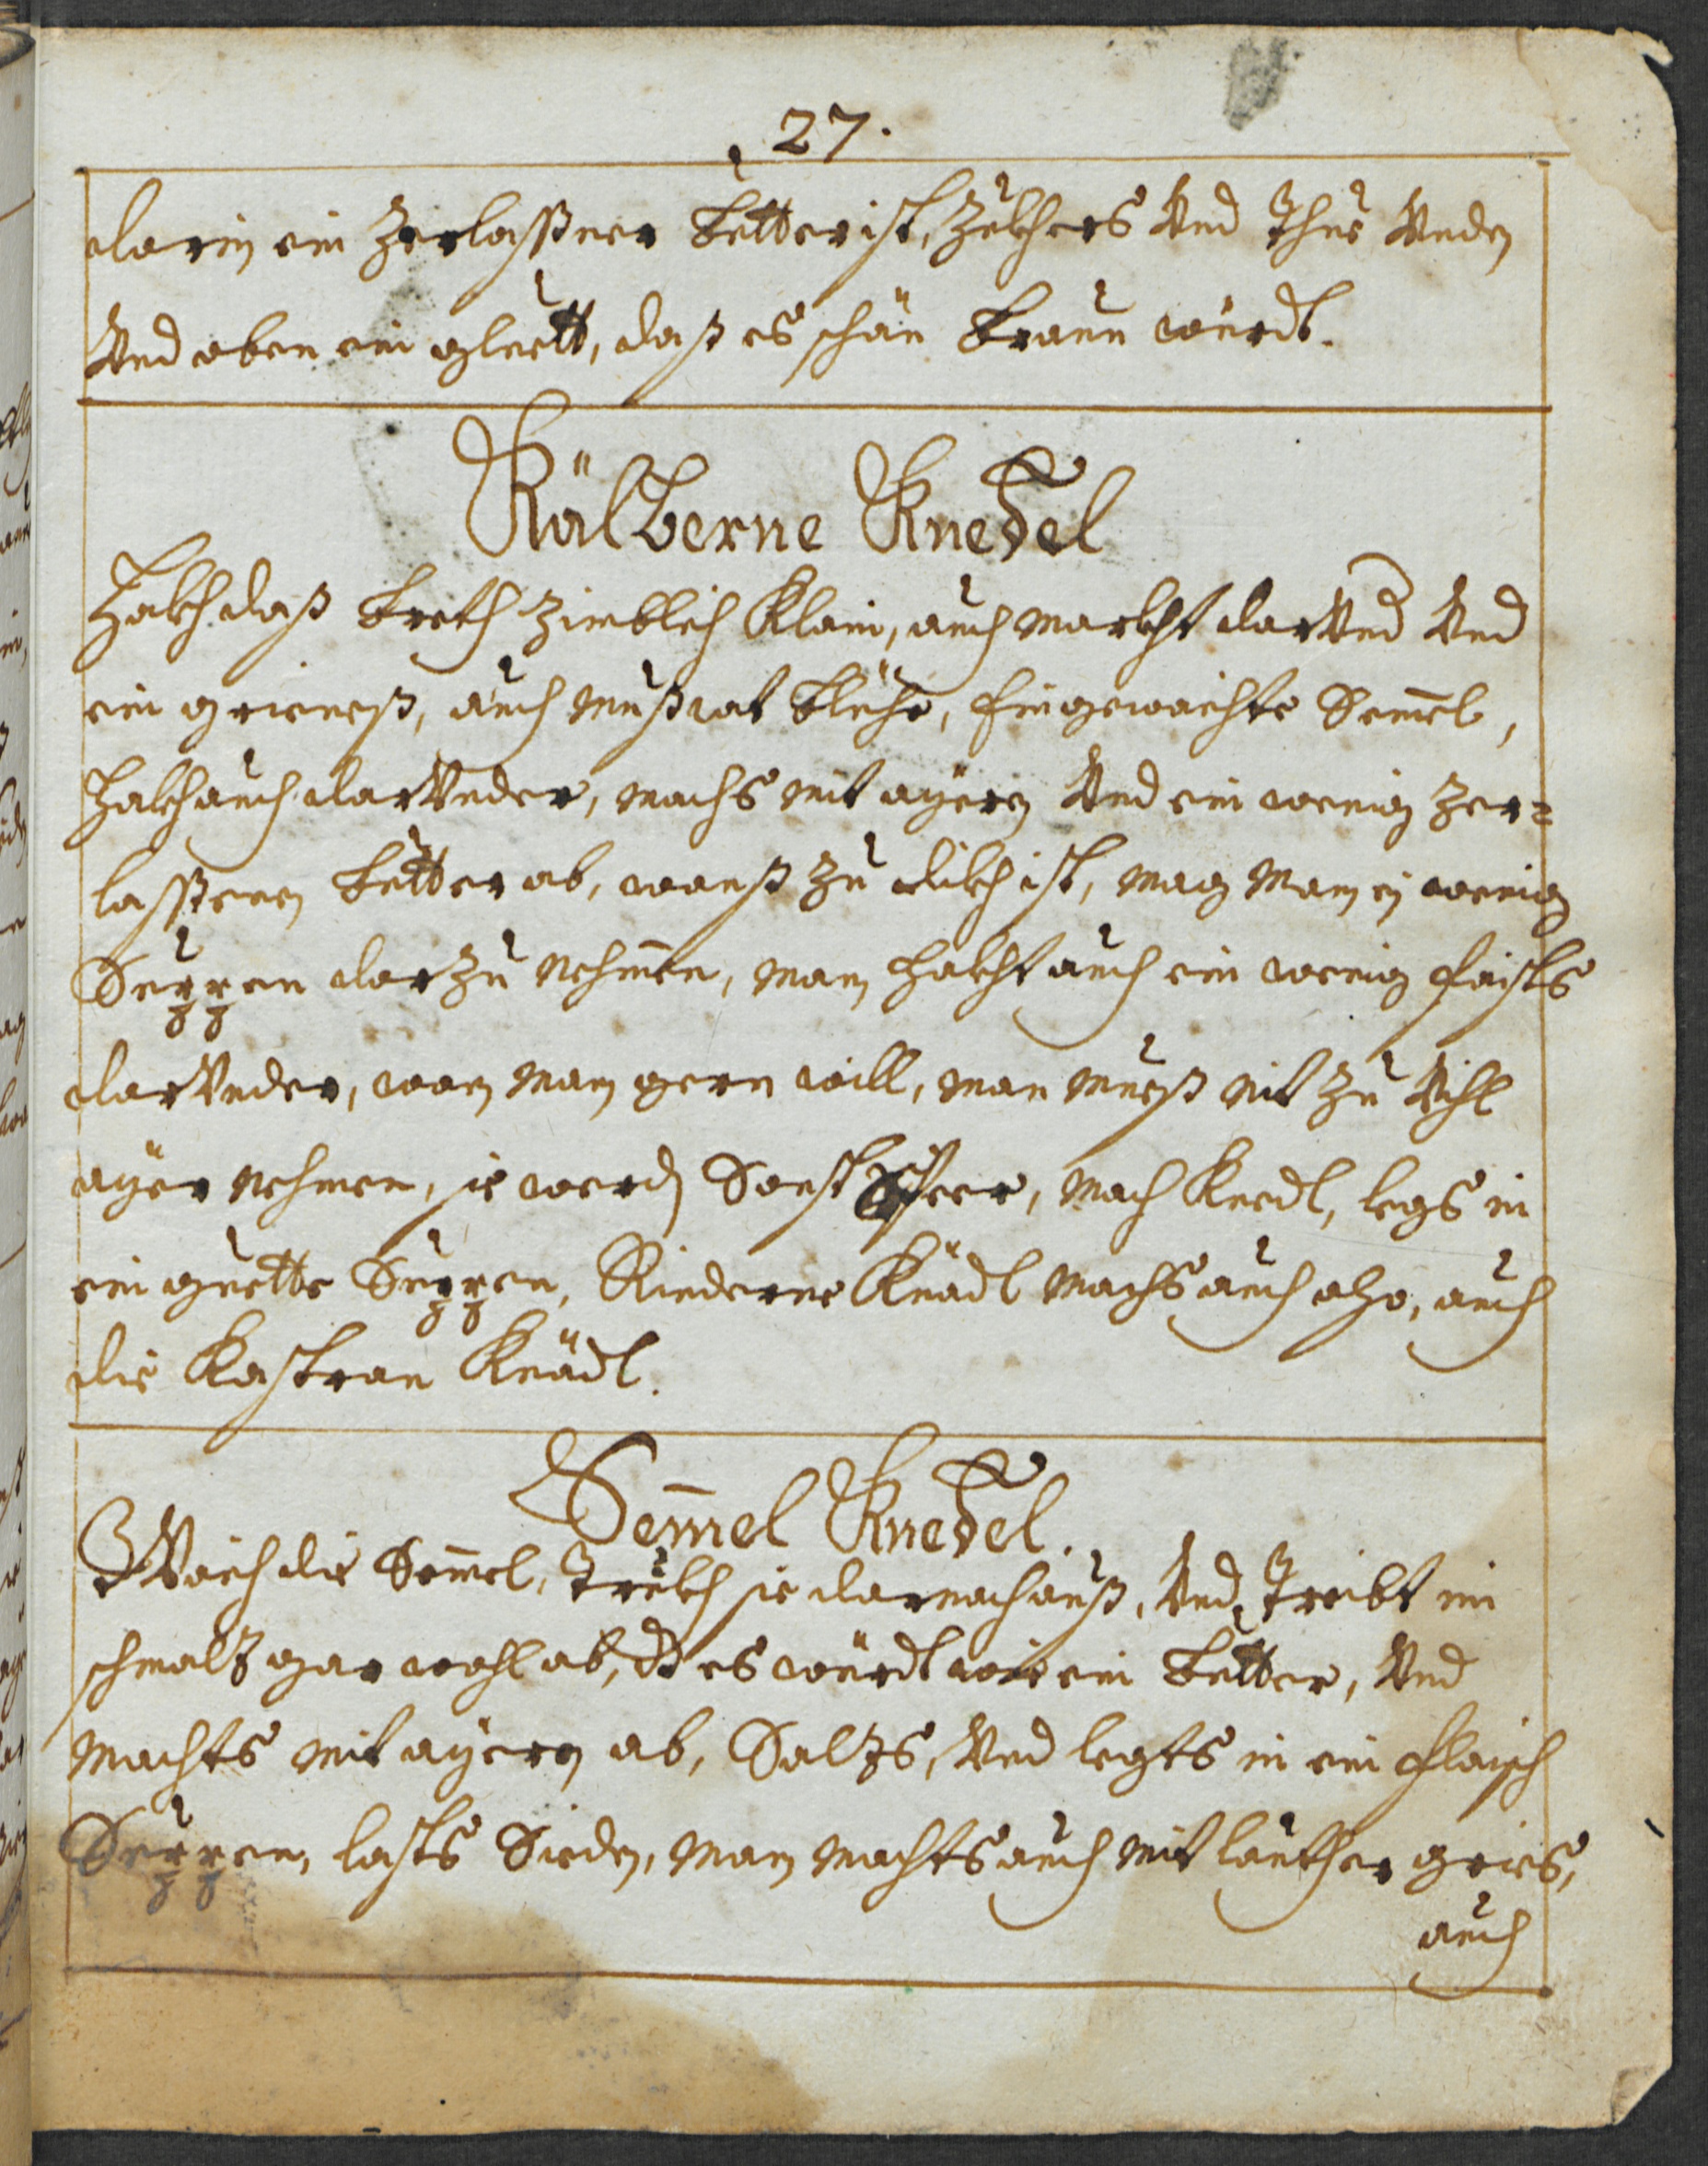 27.
darin ein Zerlaßner Butter ist, Zukhers Und Thue Unden
Und oben ein gluett, daß es schön Braun würdt.
Kälberne Knedel
Hakh daß Breth Zimblich Klain, auch markht dar Und Und
ein grieneß, auch mußcat Blühe, Eingewaichte Sem̄el,
Hakh auch dar Under, machs mit ayern Und ein wenig Zer=
laßenen Butter ab, wanß Zu dikh ist, mag man ein wenig
Suppen dar Zu Nehmen, man hakht auch ein wenig faists
dar Under, wan man gern will, man mueß nit Zu Vihl
ayer Nehmen, sie werden Sonst, mach Knedl, legs in
ein guette Suppen, Rinderne Knödl machs auch also, auch
die Kastran Knödl.
Sem̄el Knedel.
Waich die Sem̄el, Trukh sie darnach auß, Und Treibt im
schmalz gar wohl ab, dz es würdt wie ein Butter, Und
machts mit ayern ab, Salzs, Und legts in ein flaisch
Suppen, lasts Sieden, man machts auch mit lauther gries,
auch